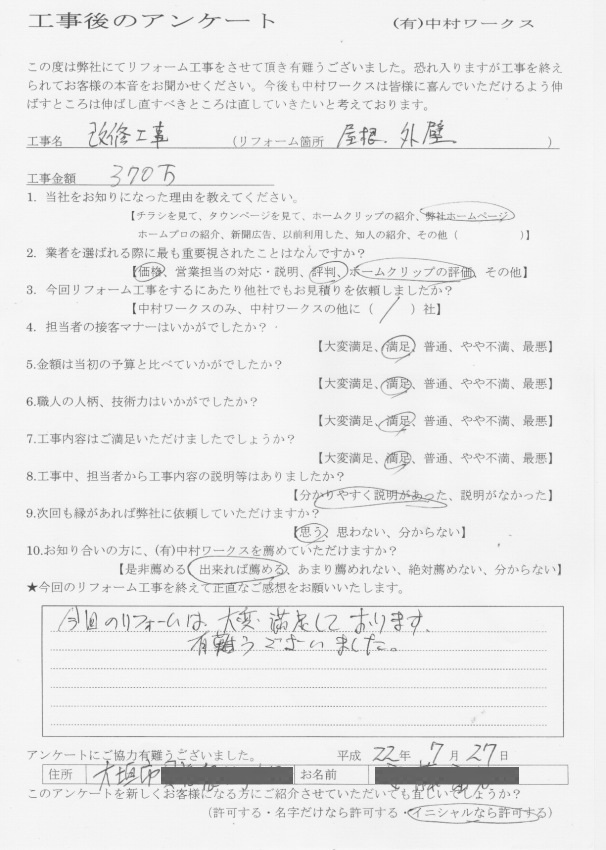 工事後のアンケート　(有)中村ワークス
この度は弊社にてリフォーム工事をさせて頂き有難うございました。恐れ入りますが工事を終え
られてお客様の本音をお聞かせください。今後も中村ワークスは皆様に喜んでいただけるよう伸
ばすところは伸ばし直すべきところは直していきたいと考えております。
工事名　改修工事　(リフォーム箇所　屋根、外壁　)
工事金額　370万
1. 当社をお知りになった理由を教えてください。
【チラシを見て、タウンページを見て、ホームクリップの紹介、弊社ホームページ
ホームプロの紹介、新聞広告、以前利用した、知人の紹介、その他（　）】
2. 業者を選ばれる際に最も重要視されたことはなんですか？
【価格、営業担当の対応・説明、評判、ホームクリップの評価、その他】
3. 今回リフォーム工事をするにあたり他社でもお見積りを依頼しましたか？
【中村ワークスのみ、中村ワークスの他に（ / ）社】
4. 担当者の接客マナーはいかがでしたか？
【大変満足、満足、普通、やや不満、最悪】
5.金額は当初の予算と比べていかがでしたか？
【大変満足、満足、普通、やや不満、最悪】
6.職人の人柄、技術力はいかがでしたか？
【大変満足、満足、普通、やや不満、最悪】
7.工事内容はご満足いただけましたでしょうか？
【大変満足、満足、普通、やや不満、最悪】
8.工事中、担当者から工事内容の説明等はありましたか？
【分かりやすく説明があった、説明がなかった】
9.次回も縁があれば弊社に依頼していただけますか？
【思う、思わない、分からない】
10.お知り合いの方に、(有)中村ワークスを薦めていただけますか？
【是非薦める、出来れば薦める、あまり薦めれない、絶対薦めない、分からない】
★今回のリフォーム工事を終えて正直なご感想をお願いいたします。
今回のリフォームは、大変満足しております。
有難うございました。
アンケートにご協力有難うございました。　平成 22年 7月 27日
住所　大垣市　お名前
このアンケートを新しくお客様になる方にご紹介させていただいても宜しいでしょうか？
(許可する・名字だけなら許可する・イニシャルなら許可する)